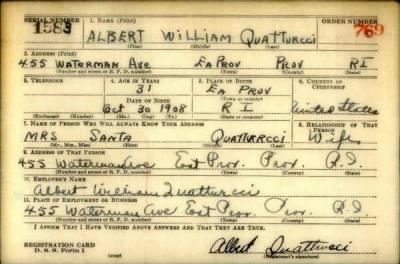 SERIAL NUMBER 1. NAME (Print) ORDER NUMBER
1589 ALBERT WILLIAM QUATTURCCI 769
(First) (Middle) (Last)
2. ADDRESS (Print)
455 WATERMAN AVE EA PROV PROV RI
(Number and street or R. F. D. number) (Town) (County) (State)
3. TELEPHONE 4. AGE IN YEARS 5. PLACE OF BIRTH 6. COUNTRY OF CITIZENSHIP
31 EA PROV
DATE OF BIRTH (Town or county)
Oct 30 1908 R I United States
(Exchange) (Number) (Mo.) (Day) (Yr.) (State or country)
7. NAME OF PERSON WHO WILL ALWAYS KNOW YOUR ADDRESS 8. RELATIONSHIP OF THAT PERSON
MRS SANTA QUATTURCCI Wife
(Mr., Mrs., Miss) (First) (Middle) (Last)
9. ADDRESS OF THAT PERSON
455 Waterman Ave East Prov. Prov. R.I.
(Number and street or R. F. D. number) (Town) (County) (State)
10. EMPLOYER'S NAME
Albert William Quatturcci
11. PLACE OF EMPLOYMENT OR BUSINESS
455 Waterman Ave East Prov. Prov. R.I.
(Number and street or R. F. D. number) (Town) (County) (State)
I AFFIRM THAT I HAVE VERIFIED ABOVE ANSWERS AND THAT THEY ARE TRUE.
REGISTRATION CARD
D. S. S. Form 1 (over) Albert Quatturcci
(Registrant's signature)